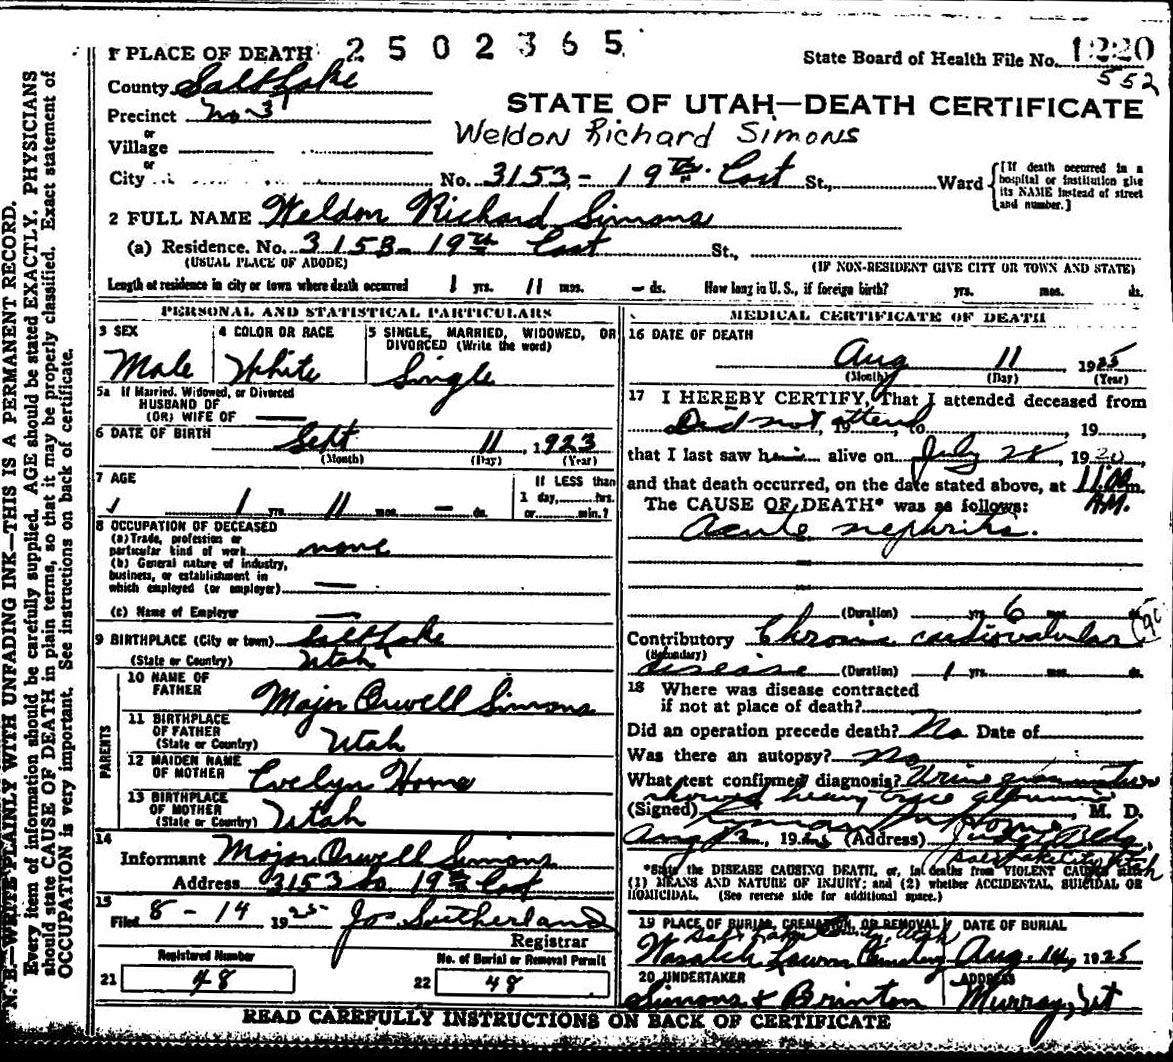 1 PLACE OF DEATH 2 5 0 2 3 6 5
State Board of Health File No. 1220
552
County Salt Lake
Precinct No 3
STATE OF UTAH—DEATH CERTIFICATE
or
Village
Weldon Richard Simons
or
City No. 3153 - 19th East St., Ward
[If death occurred in a hospital or institution give its NAME instead of street and number.]
2 FULL NAME Weldon Richard Simons
(a) Residence. No. 3153 - 19th East St.,
(USUAL PLACE OF ABODE)
(IF NON-RESIDENT GIVE CITY OR TOWN AND STATE)
Length of residence in city or town where death occurred 1 yrs. 11 mos. - ds. How long in U. S., if foreign birth? yrs. mos. ds.
PERSONAL AND STATISTICAL PARTICULARS
3 SEX
Male
4 COLOR OR RACE
White
5 SINGLE, MARRIED, WIDOWED, OR DIVORCED (Write the word)
Single
5a If Married, Widowed, or Divorced
HUSBAND OF
(OR) WIFE OF —
6 DATE OF BIRTH Sept 11, 1923
(Month) (Day) (Year)
7 AGE
1 yrs. 11 mos. - ds.
If LESS than
1 day, hrs.
or min.?
8 OCCUPATION OF DECEASED
(a) Trade, profession or
particular kind of work none
(b) General nature of industry,
business, or establishment in
which employed (or employer) —
(c) Name of Employer —
9 BIRTHPLACE (City or town) Salt Lake
(State or Country) Utah
PARENTS
10 NAME OF
FATHER Major Orwell Simons
11 BIRTHPLACE
OF FATHER
(State or Country) Utah
12 MAIDEN NAME
OF MOTHER Evelyn Horne
13 BIRTHPLACE
OF MOTHER
(State or Country) Utah
14
Informant Major Orwell Simons
Address 3153 So. 19th East
15
Filed 8 - 14 1925 Jos Sutherland
Registrar
Registered Number
21 48
No. of Burial or Removal Permit
22 48
MEDICAL CERTIFICATE OF DEATH
16 DATE OF DEATH
Aug 11 1925
(Month) (Day) (Year)
17 I HEREBY CERTIFY, That I attended deceased from
Did not attend, 19 to 19
that I last saw him alive on July 28, 1920
and that death occurred, on the date stated above, at 11:00 m.
A.M.
The CAUSE OF DEATH* was as follows:
Acute nephritis.
(Duration) yrs. 6 mos. ds.
Contributory Chronic cardiovalvular
(Secondary)
disease (Duration) 1 yrs. mos. ds.
18 Where was disease contracted
if not at place of death?
Did an operation precede death? No Date of
Was there an autopsy? No
What test confirmed diagnosis? Urine examination
showed heavy trace albumin
(Signed) Horne, M. D.
Aug 12, 1925 (Address) Judge Bldg.
Salt Lake City Utah
*State the DISEASE CAUSING DEATH, or, in deaths from VIOLENT CAUSES state
(1) MEANS AND NATURE OF INJURY; and (2) whether ACCIDENTAL, SUICIDAL OR
HOMICIDAL. (See reverse side for additional space.)
19 PLACE OF BURIAL, CREMATION, OR REMOVAL
Salt Lake City, Utah
Wasatch Lawn Cemetery
DATE OF BURIAL
Aug. 14, 1925
20 UNDERTAKER
Simons & Brinton
ADDRESS
Murray, Ut
READ CAREFULLY INSTRUCTIONS ON BACK OF CERTIFICATE
N. B.—WRITE PLAINLY WITH UNFADING INK—THIS IS A PERMANENT RECORD.
Every item of information should be carefully supplied. AGE should be stated EXACTLY. PHYSICIANS
should state CAUSE OF DEATH in plain terms, so that it may be properly classified. Exact statement of
OCCUPATION is very important. See instructions on back of certificate.